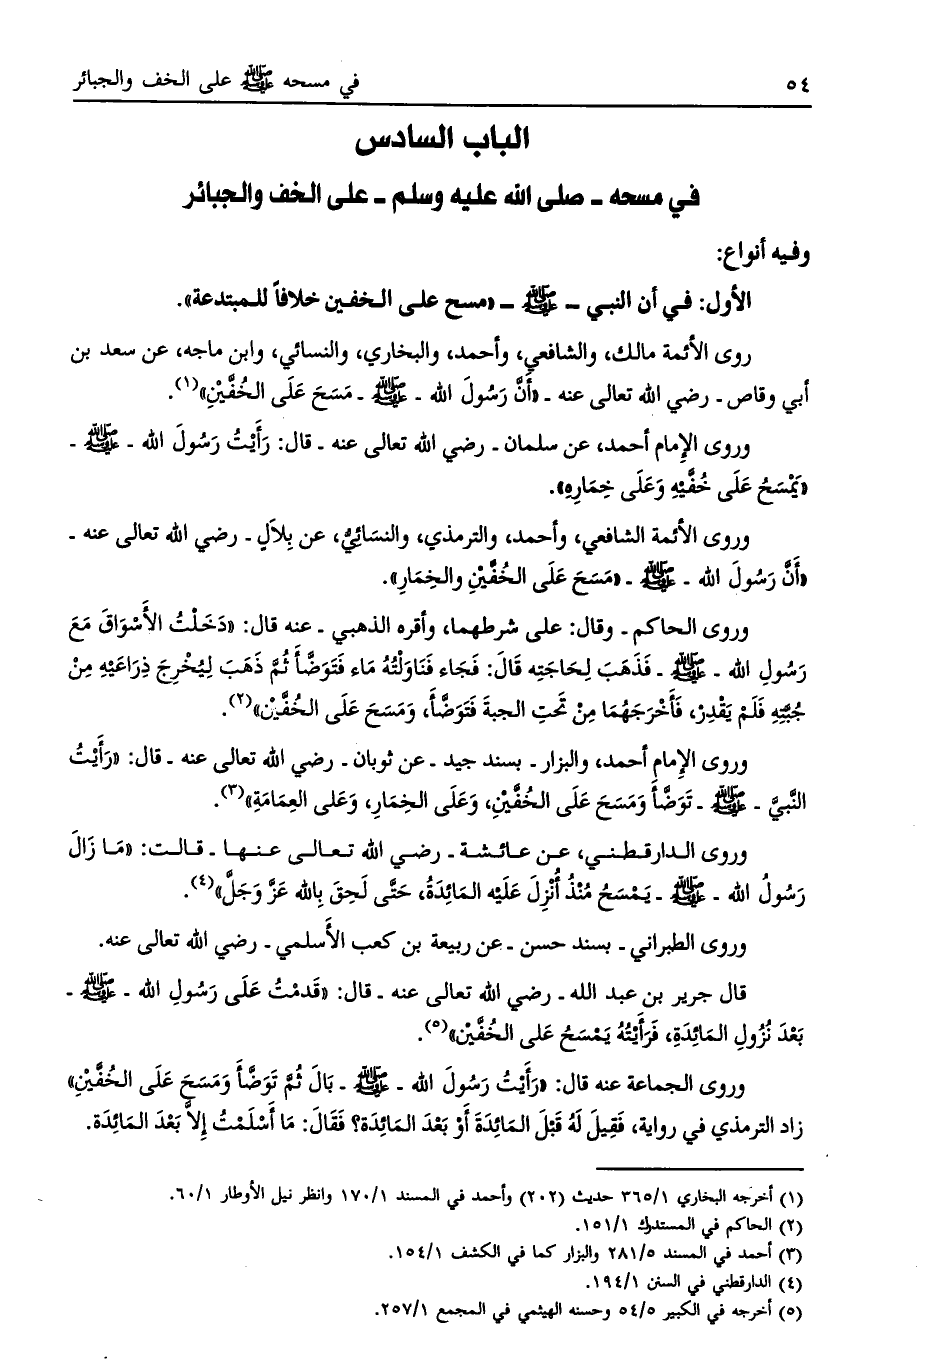 ٥٤ في مسحه ﷺ على الخف والجبائر
الباب السادس
في مسحه ـ صلى الله عليه وسلم ـ على الخف والجبائر
وفيه أنواع:
الأول: في أن النبي ـ ﷺ ـ «مسح على الخفين خلافاً للمبتدعة».
روى الأئمة مالك، والشافعي، وأحمد، والبخاري، والنسائي، وابن ماجه، عن سعد بن
أبي وقاص ـ رضي الله تعالى عنه ـ «أَنَّ رَسُولَ الله ـ ﷺ ـ مَسَحَ عَلَى الخُفَّيْنِ»(١).
وروى الإمام أحمد، عن سلمان ـ رضي الله تعالى عنه ـ قال: رَأَيْتُ رَسُولَ الله ـ ﷺ ـ
«يَمْسَحُ عَلَى خُفَّيْهِ وَعَلَى خِمَارِهِ».
وروى الأئمة الشافعي، وأحمد، والترمذي، والنسَائِيُّ، عن بِلاَلٍ ـ رضي الله تعالى عنه ـ
«أَنَّ رَسُولَ الله ـ ﷺ ـ «مَسَحَ عَلَى الخُفَّيْنِ والخِمَارِ».
وروى الحاكم ـ وقال: على شرطهما، وأقره الذهبي ـ عنه قال: «دَخَلْتُ الأَسْوَاقَ مَعَ
رَسُولِ الله ـ ﷺ ـ فَذَهَبَ لِحَاجَتِه قَالَ: فَجَاء فَنَاوَلْتُهُ مَاء فَتَوَضَّأَ ثُمَّ ذَهَبَ لِيُخْرِجَ ذِرَاعَيْهِ مِنْ
جُبَّتِهِ فَلَمْ يَقْدِرْ، فَأَخْرَجَهُمَا مِنْ تَحَتِ الجبة فَتَوَضَّأَ، وَمَسَحَ عَلَى الخُفَّيْن»(٢).
وروى الإمام أحمد، والبزار ـ بسند جيد ـ عن ثوبان ـ رضي الله تعالى عنه ـ قال: «رَأَيْتُ
النَّبيَّ ـ ﷺ ـ تَوَضَّأَ وَمَسَحَ عَلَى الخُفَّيْنِ، وَعَلَى الخِمَارِ، وَعَلى العِمَامَةِ»(٣).
وروى الدارقطني، عن عائشة ـ رضي الله تعالى عنها ـ قالت: «مَا زَالَ
رَسُولُ الله ـ ﷺ ـ يَمْسَحُ مُنْذُ أُنْزِلَ عَلَيْه المَائِدَةُ، حَتَّى لَحِقَ بِالله عَزَّ وَجَلَّ»(٤).
وروى الطبراني ـ بسند حسن ـ عن ربيعة بن كعب الأَسلمي ـ رضي الله تعالى عنه.
قال جرير بن عبد الله ـ رضي الله تعالى عنه ـ قال: «قَدمْتُ عَلَى رَسُولِ الله ـ ﷺ ـ
بَعْدَ نُزُولِ المَائِدَةِ، فَرَأَيْتُهُ يَمْسَحُ عَلى الخُفَّيْن»(٥).
وروى الجماعة عنه قال: «رَأَيْتُ رَسُولَ الله ـ ﷺ ـ بَالَ ثُمَّ تَوَضَّأَ وَمَسَحَ عَلَى الخُفَّيْنِ»
زاد الترمذي في رواية، فَقِيلَ لَهُ قَبْلَ المَائِدَةَ أَوْ بَعْدَ المَائِدَة؟ فَقَالَ: مَا أَسْلَمْتُ إِلاَّ بَعْدَ المَائِدَة.
(١) أخرجه البخاري ٣٦٥/١ حديث (٢٠٢) وأحمد في المسند ١٧٠/١ وانظر نيل الأوطار ٦٠/١.
(٢) الحاكم في المستدرك ١٥١/١.
(٣) أحمد في المسند ٢٨١/٥ والبزار كما في الكشف ١٥٤/١.
(٤) الدارقطني في السنن ١٩٤/١.
(٥) أخرجه في الكبير ٥٤/٥ وحسنه الهيثمي في المجمع ٢٥٧/١.